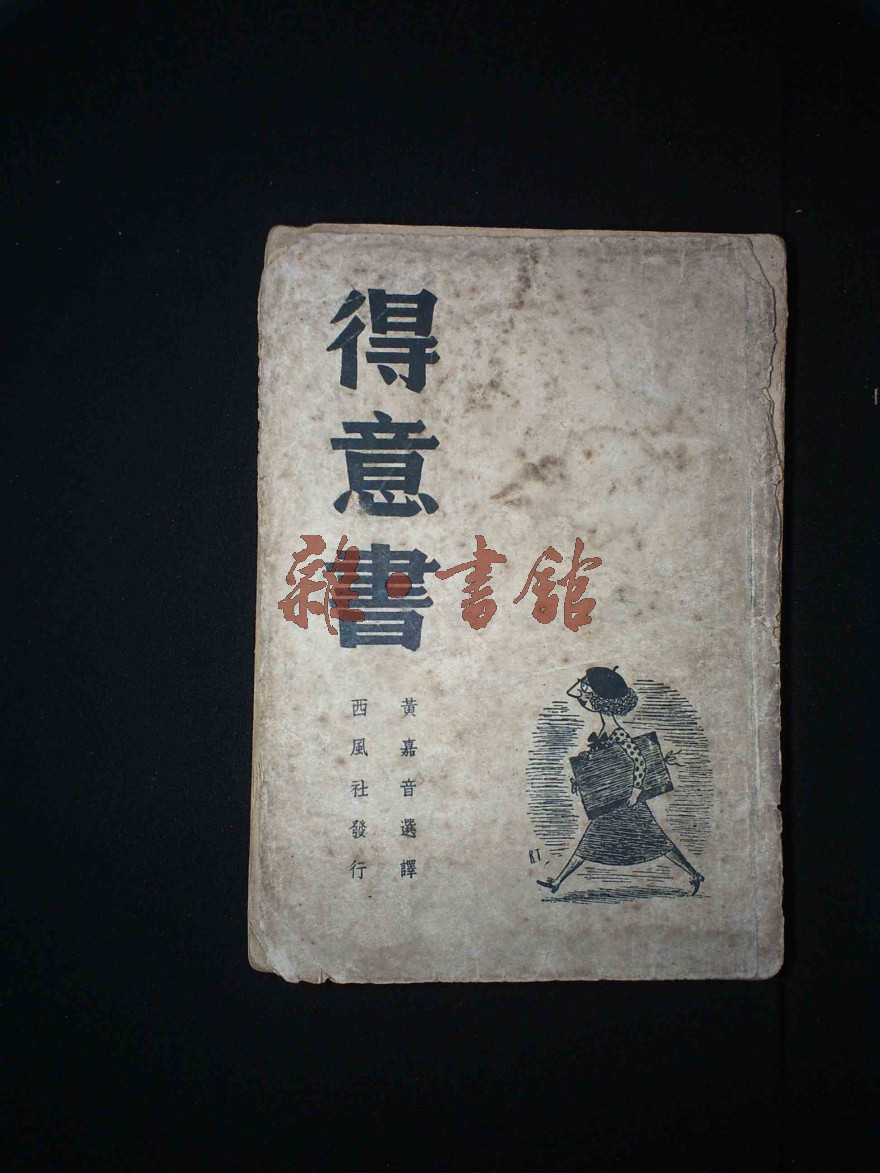 得意書
黃嘉音選譯
西風社發行
雜·書館
R.T.